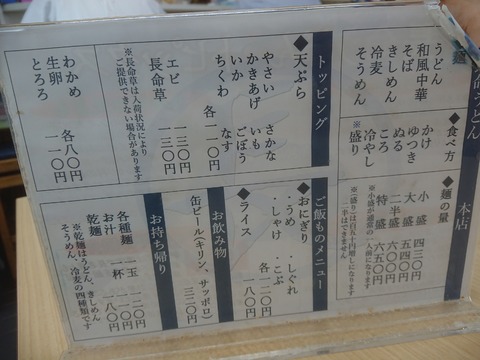 本店
◆麺
うどん
和風中華
そば
きしめん
冷麦
そうめん
◆食べ方
かけ
ゆつき
ぬる
ころ
冷やし
※盛り
◆麺の量
小盛 四三〇円
大盛 五四〇円
二半盛 六五〇円
特盛 六七〇円
※小盛が通常の一人前になります
※(盛り)は百五十円増しになります
二半はできません
トッピング
◆天ぷら
やさい さかな
かきあげ いも
いか ごぼう
ちくわ なす
各一一〇円
エビ 一三〇円
長命草 一三〇円
※長命草は入荷状況により
ご提供できない場合があります
わかめ 各八〇円
生卵
とろろ 一一〇円
ご飯ものメニュー
◆おにぎり
・うめ ・しぐれ
・しゃけ ・こぶ
各一二〇円
◆ライス 一八〇円
お飲み物
缶ビール(キリン、サッポロ)
三二〇円
お持ち帰り
各種麺 一玉 一二〇円
お汁 一杯 一〇〇円
乾麺 一八〇円
※乾麺はうどん、きしめん
そうめん、冷麦の四種類です